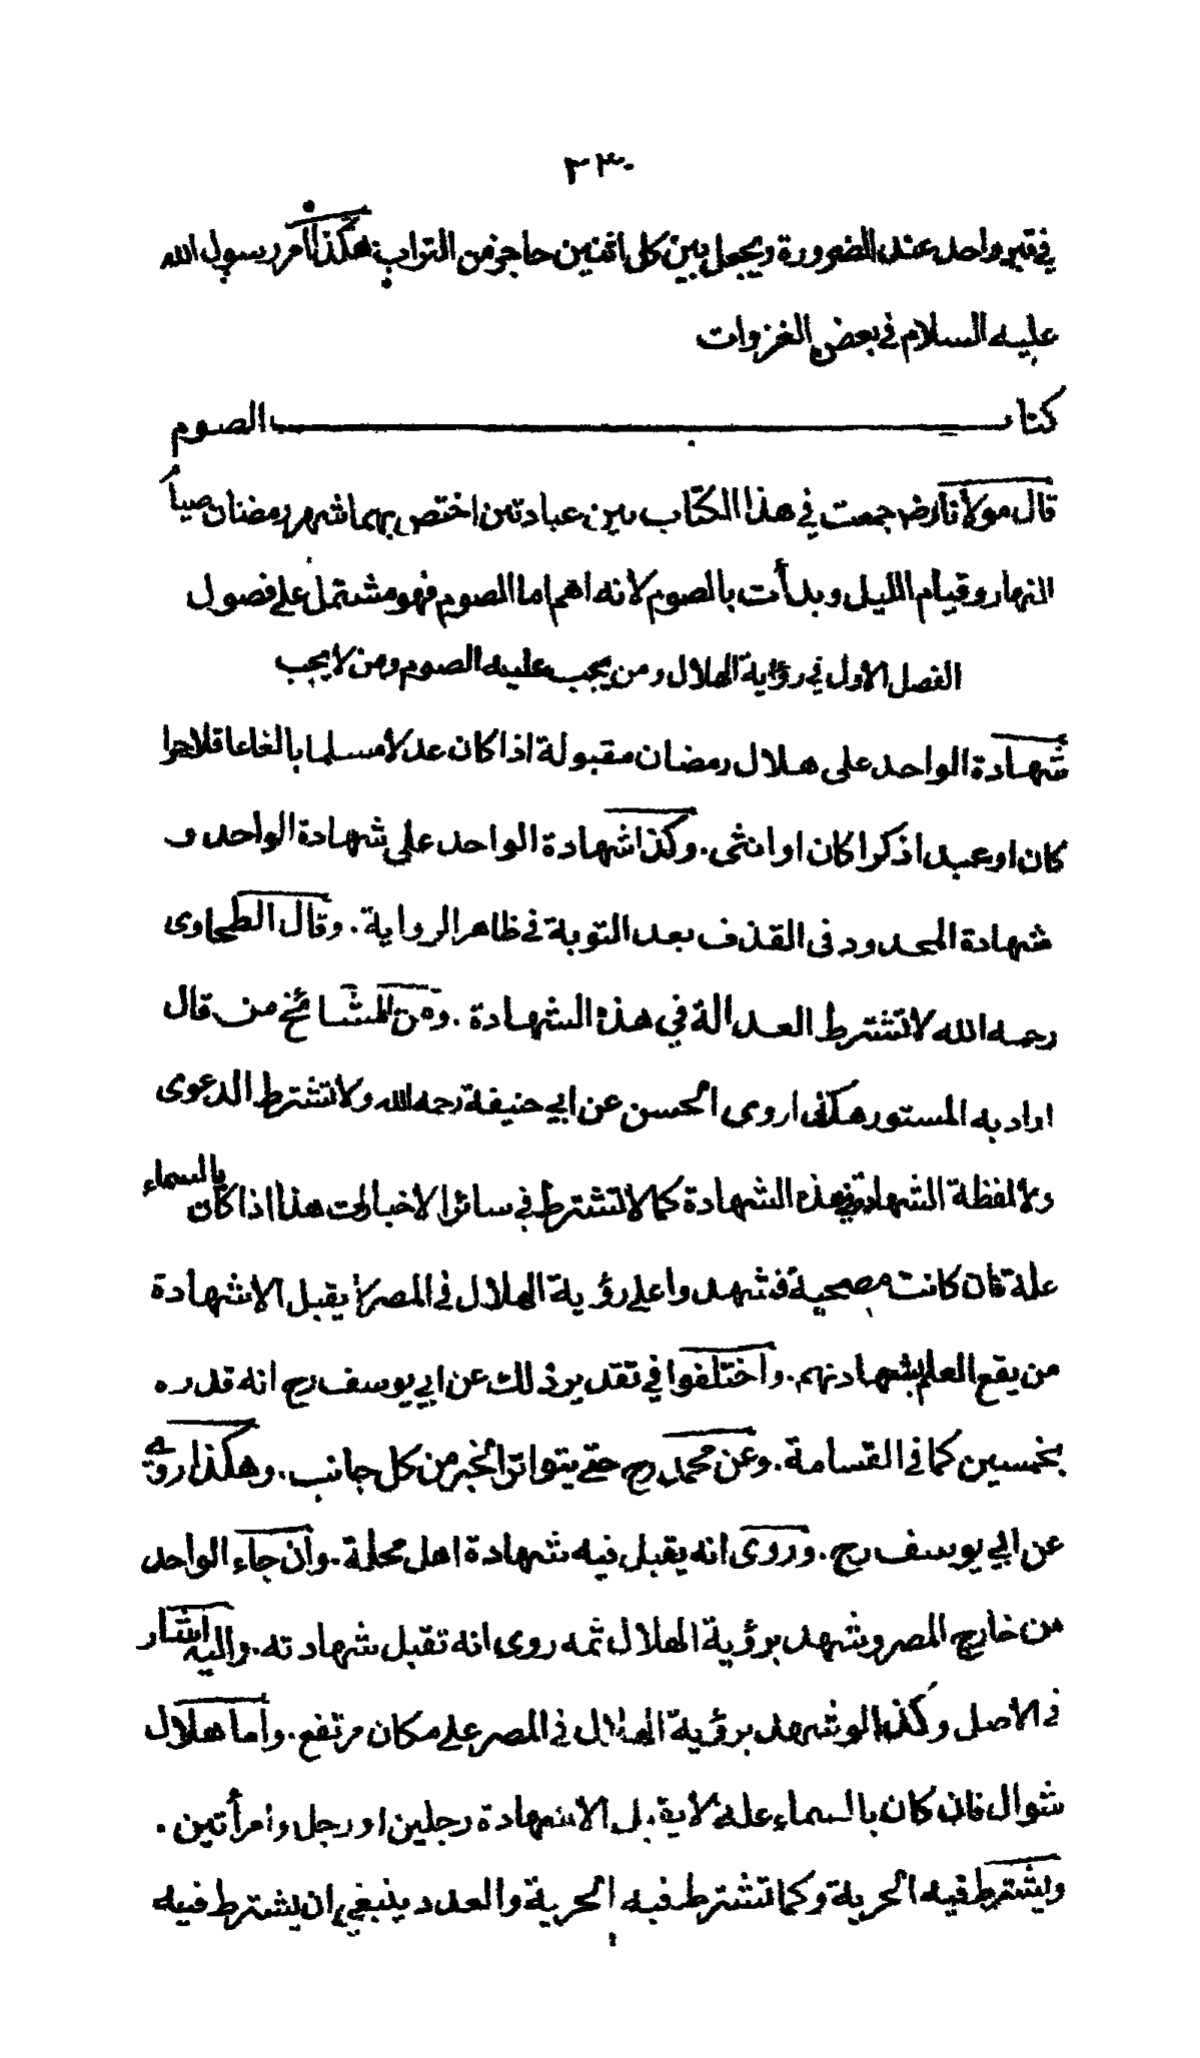 ٢٣٠
في قبر واحد عند الضرورة ويجعل بين كل اثنين حاجز من التراب هكذا امر رسول الله
عليه السلام في بعض الغزوات
كتاب الصوم
قال مولانا رض جمعت في هذا الكتاب بين عبادتين اختص بهما شهر رمضان صيام
النهار وقيام الليل وبدأت بالصوم لانه اهم اما الصوم فهو مشتمل على فصول
الفصل الاول في رؤية الهلال ومن يجب عليه الصوم ومن لا يجب
شهادة الواحد على هلال رمضان مقبولة اذا كان عدلا مسلما بالغا عاقلا حرا
كان او عبدا ذكرا كان او انثى. وكذا شهادة الواحد على شهادة الواحد و
شهادة المحدود في القذف بعد التوبة في ظاهر الرواية. وقال الطحاوى
رحمه الله لا تشترط العدالة في هذه الشهادة. ومن المشائخ من قال
اراد به المستور هكذا روى الحسن عن ابي حنيفة رحمه الله ولا تشترط الدعوى
ولا لفظة الشهادة في هذه الشهادة كما لا تشترط في سائر الاخبارات هذا اذا كان بالسماء
علة فان كانت مصحية فشهدوا على رؤية الهلال في المصر لا يقبل الا شهادة
من يقع العلم بشهادتهم. واختلفوا في تقدير ذلك عن ابي يوسف رح انه قدره
بخمسين كما في القسامة. وعن محمد رح حتى يتواتر الخبر من كل جانب. وهكذا روي
عن ابي يوسف رح. وروى انه يقبل فيه شهادة اهل محلة. وان جاء الواحد
من خارج المصر وشهد برؤية الهلال ثمه روى انه تقبل شهادته. واليه اشار
في الاصل وكذا لو شهد برؤية الهلال في المصر على مكان مرتفع. واما هلال
شوال فان كان بالسماء علة لا يقبل الا شهادة رجلين او رجل وامرأتين.
ويشترط فيه الحرية وكما تشترط فيه الحرية والعدد ينبغي ان يشترط فيه